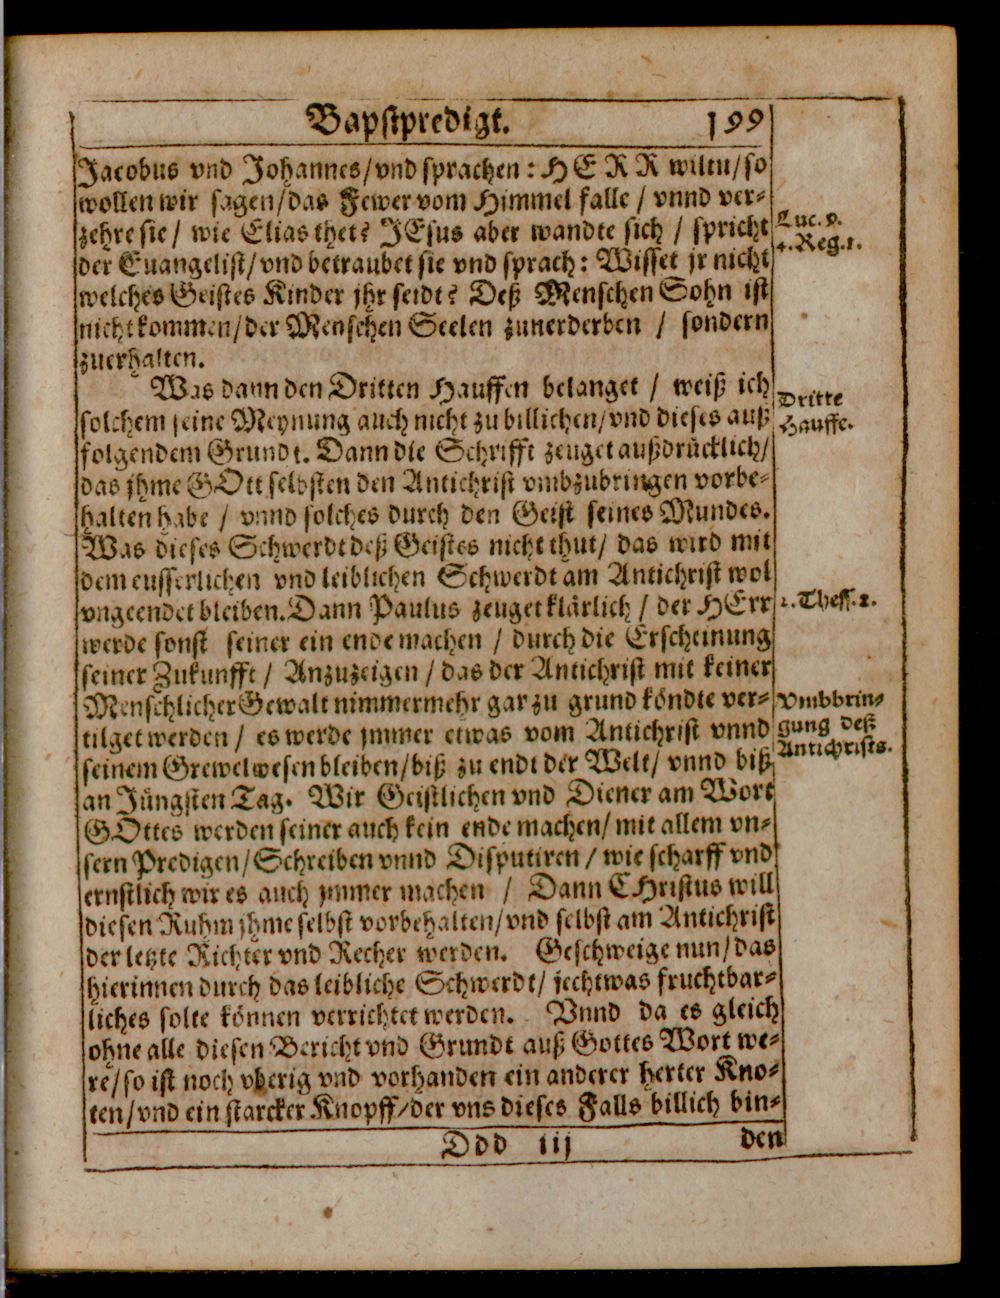 Bapstpredigt. 199
Jacobus vnd Johannes/vnd sprachen: HERR wiltu/so
wollen wir sagen/das Fewer vom Himmel falle / vnnd ver-
zehre sie / wie Elias thet? JEsus aber wandte sich / spricht
der Euangelist/vnd betraubet sie vnd sprach: Wisset jr nicht
welches Geistes Kinder jhr seidt? Deß Menschen Sohn ist
nicht kommen/der Menschen Seelen zunerderben / sondern
zuerhalten.
Luc. 9.
4. Reg. 1.
Was dann den Dritten Hauffen belanget / weiß ich
solchem seine Meynung auch nicht zu billichen/vnd dieses auß
folgendem Grundt. Dann die Schrifft zeuget außdrücklich/
das jhme GOtt selbsten den Antichrist vmbzubringen vorbe-
halten habe / vnnd solches durch den Geist seines Mundes.
Was dieses Schwerdt deß Geistes nicht thut/ das wird mit
dem eusserlichen vnd leiblichen Schwerdt am Antichrist wol
vngeendet bleiben. Dann Paulus zeuget klärlich / der HErr
werde sonst seiner ein ende machen / durch die Erscheinung
seiner Zukunfft / Anzuzeigen / das der Antichrist mit keiner
Menschlicher Gewalt nimmermehr gar zu grund köndte ver-
tilget werden / es werde jmmer etwas vom Antichrist vnnd
seinem Grewelwesen bleiben/biß zu endt der Welt/ vnnd biß
an Jüngsten Tag. Wir Geistlichen vnd Diener am Wort
GOttes werden seiner auch kein ende machen/ mit allem vn-
sern Predigen/Schreiben vnnd Disputiren / wie scharff vnd
ernstlich wir es auch jmmer machen / Dann CHristus will
diesen Ruhm jhme selbst vorbehalten/vnd selbst am Antichrist
der letzte Richter vnd Recher werden. Geschweige nun/das
hierinnen durch das leibliche Schwerdt/ jechtwas fruchtbar-
liches solte können verrichtet werden. Vnnd da es gleich
ohne alle diesen Bericht vnd Grundt auß Gottes Wort we-
re/so ist noch vberig vnd vorhanden ein anderer herter Kno-
ten/vnd ein starcker Knopff/der vns dieses Falls billich bin-
Dritte
Hauffe.
2. Thess. 2.
Vmbbrin-
gung deß
Antichrists.
Ddd iij den